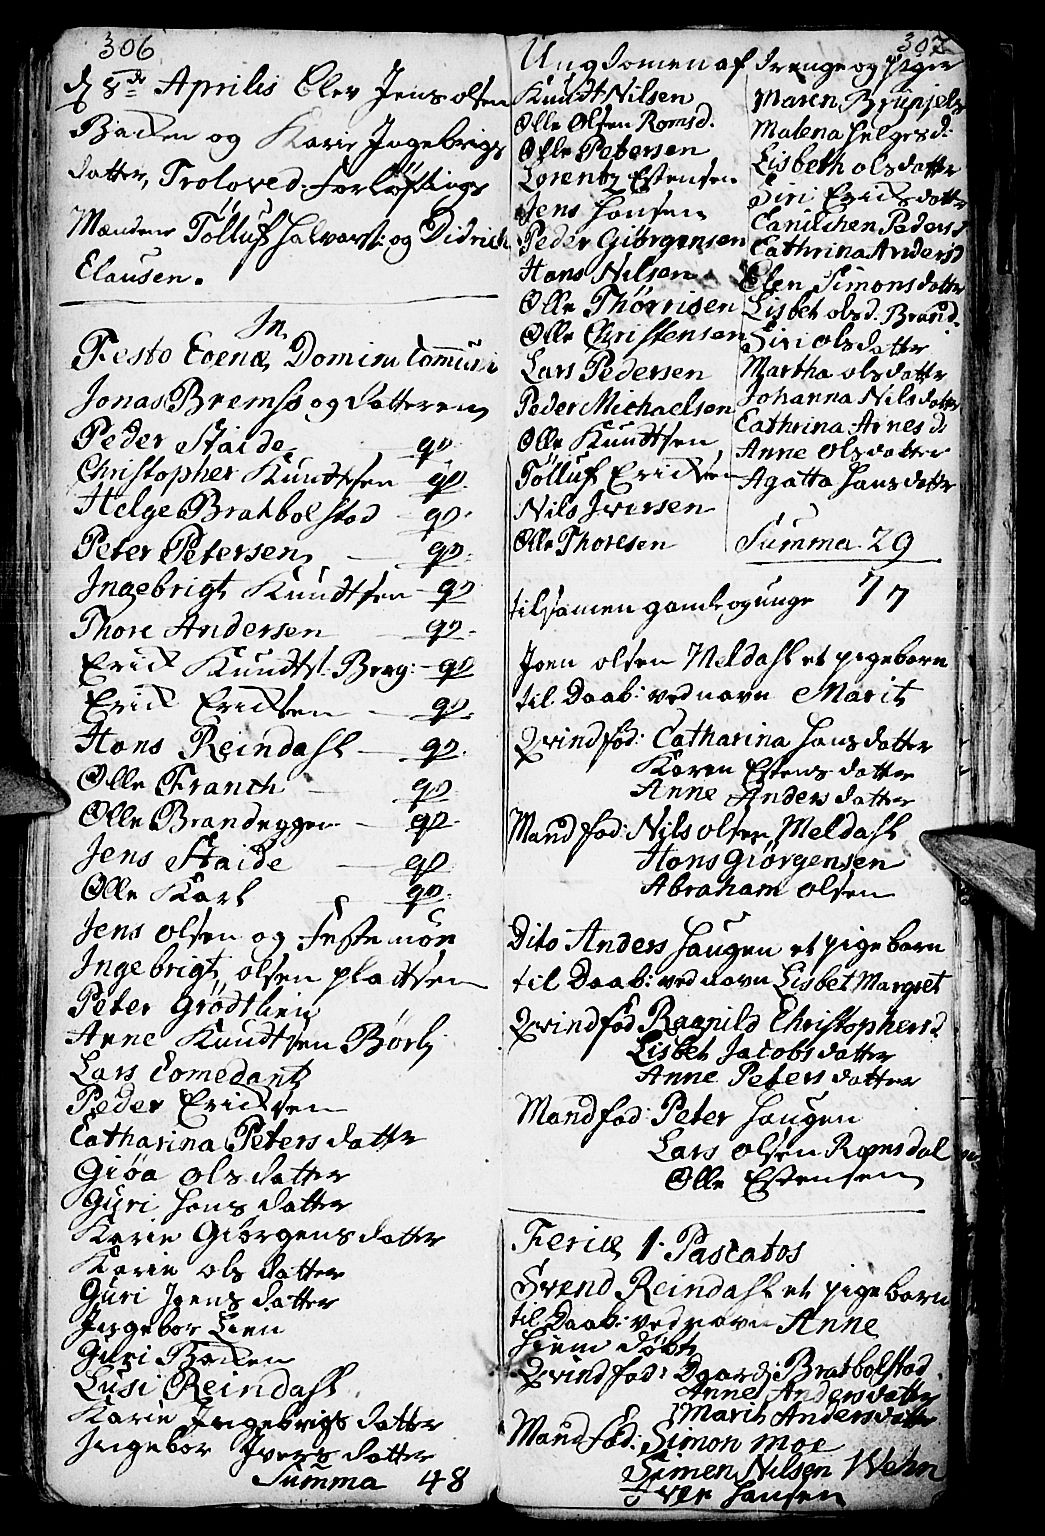 306
d 8de Aprilis Blev Jens olsen
Backen og Karie Ingebrigs
datter, Troloved. forløftnings
Mændene Tølluf Halvors: og Didrich
Clausen.
In
Festo Coenæ Domini Comuni
Jonas Bremss og datteren
Peder Staide qv
Christopher Knudtsen qv
Helge Brakbolstad qv
Peter Petersen qv
Ingebrigt Knudtsen qv
Thore Andersen qv
Erick Knudts. Brag: qv
Erick Ericksen qv
Hans Reindahl qv
Olle Franck qv
Olle Brandeggen qv
Jens Staide qv
Olle Karl qv
Jens olsen og Festemøe
Ingebrigt olsen pladtsen
Peter Grødtlien
Arne Knudtsen Børli
Lars Comedant
Peder Ericksen
Catharina Peters datter
Giøa ols datter
Guri Hans datter
Karie Giørgens datter
Karie ols datter
Guri Joens datter
Ingebor Lien
Guri Backen
Lusi Reindahl
Karie Ingebrigs datter
Ingebor Ivers datter
Summa 48
307
Ungdomen af drenge og piger
Knudt Nilsen
Olle Olsen Romsd.
Olle Petersen
Lorentz Estensen
Jens Hansen
Peder Giørgensen
Hans Nilsen
Olle Thørrisen
Olle Christensen
Lars Pedersen
Peder Michaelsen
Olle Knudtsen
Tølluf Ericksen
Nils Iversen
Olle Thoresen
Maren Brynjels
Malena Helgesd:
Lisbeth olsdatter
Siri Ericksdatter
Canilchen Peders
Cathrina Andersd
Elen Simonsdatter
Lisbet olsd. Brand.
Siri olsdatter
Martha olsdatter
Johanna Nilsdatter
Cathrina Arnesd
Anne olsdatter
Agatta Hansdatter
Summa 29
tilsamen gamle og unge 77
Joen olsen Meldahl et pigebarn
til Daab: ved navn Marit
Qvindfad: Catharina Hansdatter
Karen Estens datter
Anne Anders datter
Mandfad: Nils olsen Meldahl
Hans Giørgensen
Abraham olsen
Dito Anders Haugen et pigebarn
til Daab: ved navn Lisbet Margret
Qvindfad Ragnild Christophersd
Lisbet Jacobs datter
Anne Peters datter
Mandfad: Peter Haugen
Lars olsen Romsdal
Olle Estensen
Feriæ 1. Pascatos
Svend Reindahl et pigebarn
til Daab: ved navn Anne
Hiem døbt
Qvindfad: Daardi Brakbolstad
Anne Andersdatter
Marit Andersdatter
Mandfad: Simon Moe
Simen Nilsen Wehn
Iver Hansen